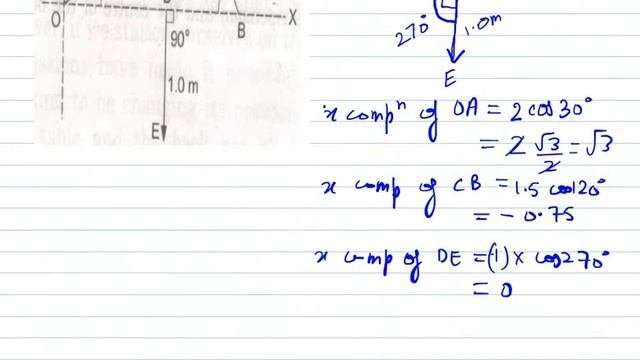 O
X
B
90°
1.0 m
E
270°
1.0m
E
x compⁿ of OA = 2 cos30°
= 2 √3/2 = √3
x comp of CB = 1.5 cos120°
= - 0.75
x comp of DE = (1) × cos270°
= 0